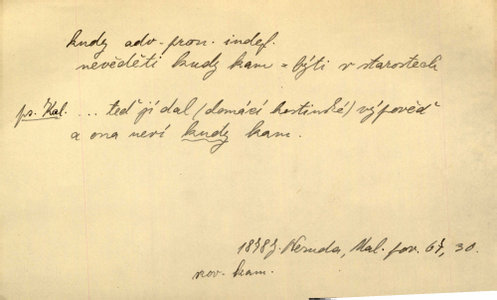 kudy adv. pron. indef.
nevěděti kudy kam = býti v starostech
ps. Kal. ... teď jí dal (domácí hostinské) výpověď
a ona neví kudy kam.
1878 J. Neruda, Mal. pov. 67, 30.
nov. kam.